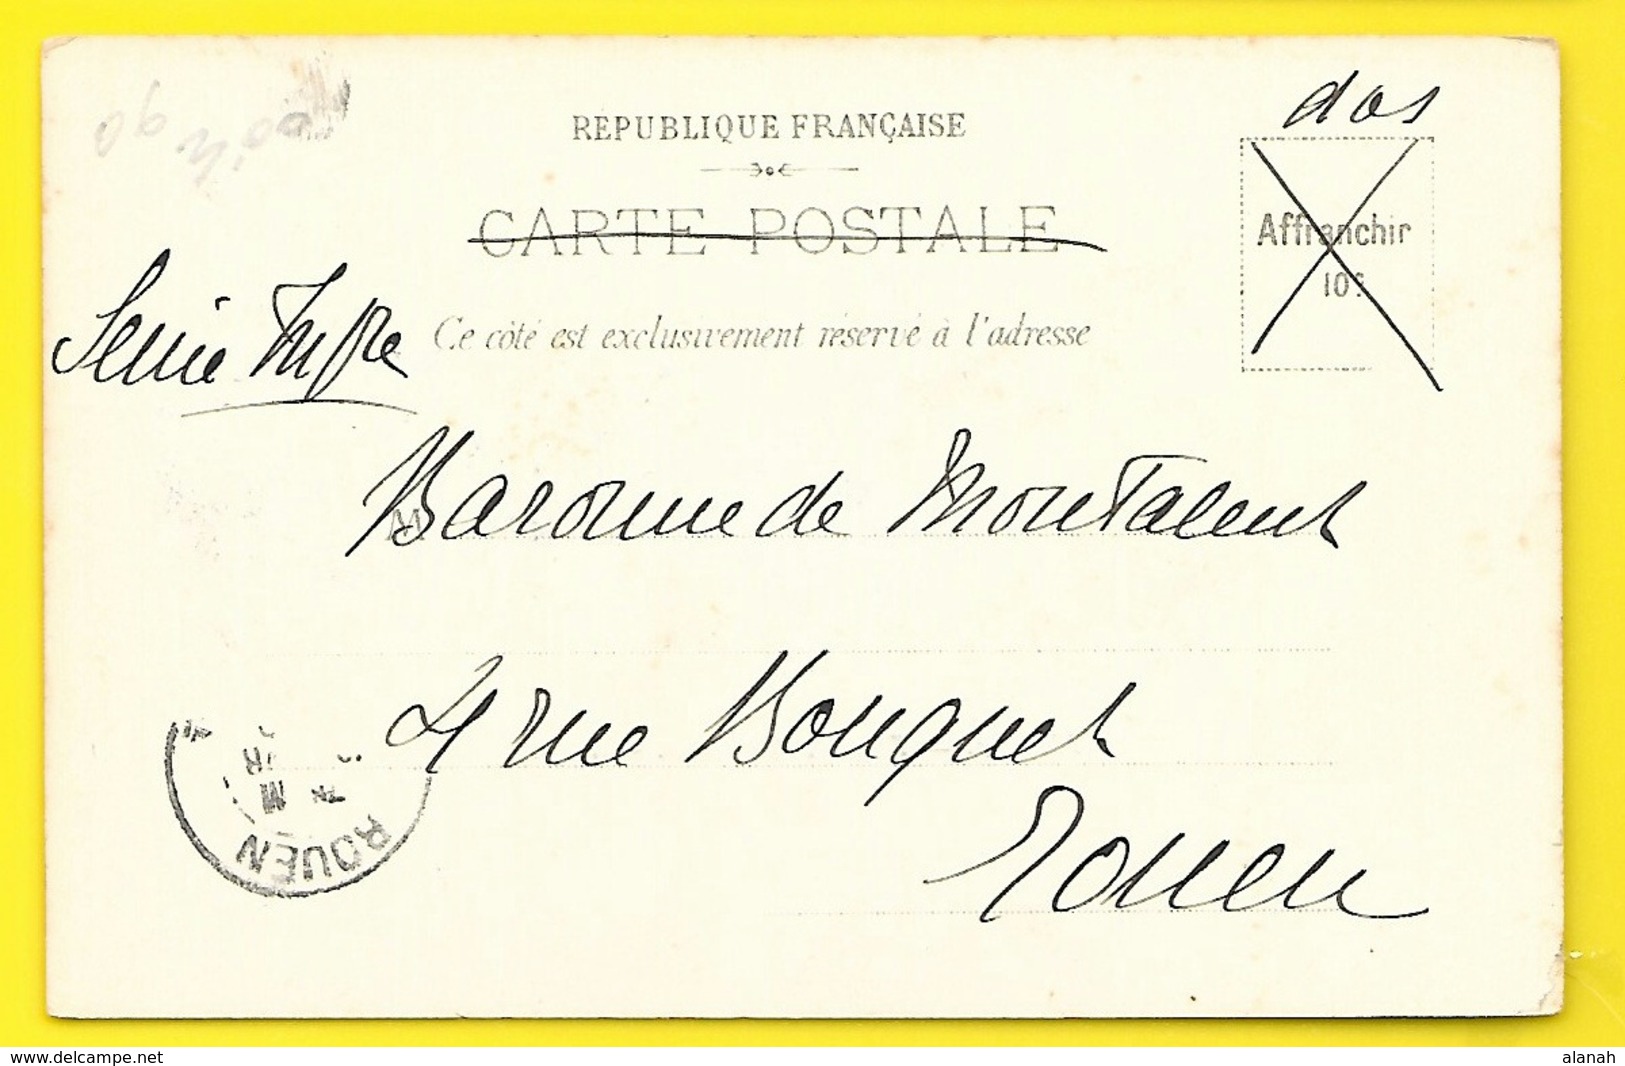 dos
RÉPUBLIQUE FRANÇAISE
CARTE POSTALE
Affranchir
10c
Ce côté est exclusivement réservé à l'adresse
M Baronne de Montalent
4 rue Bouquet
Rouen
ROUEN
www.delcampe.net
alanah